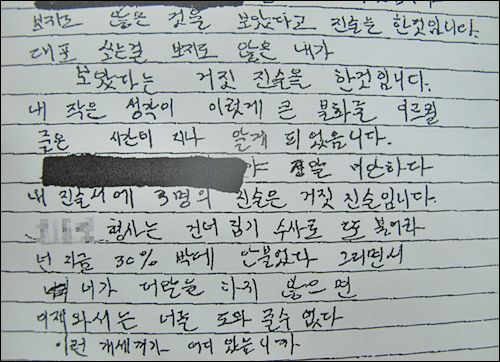 보지도 않은 것을 보았다고 진술은 한것입니다.
대포 쏘는걸 보지도 않은 내가
보았다는 거짓 진술을 한것입니다.
내 작은 생각이 이렇게 큰 불화를 이르킬
줄은 시간이 지나 알게 되었습니다.
야 정말 미안하다
내 진술서에 3명의 진술은 거짓 진술입니다.
형사는 건너 집기 수사로 또 불어라
넌 지금 30% 박에 안불었다 그러면서
네가 더말을 다지 않으면
이제 와서는 너를 도와 줄수 없다
이런 개세끼가 어디 있습니까